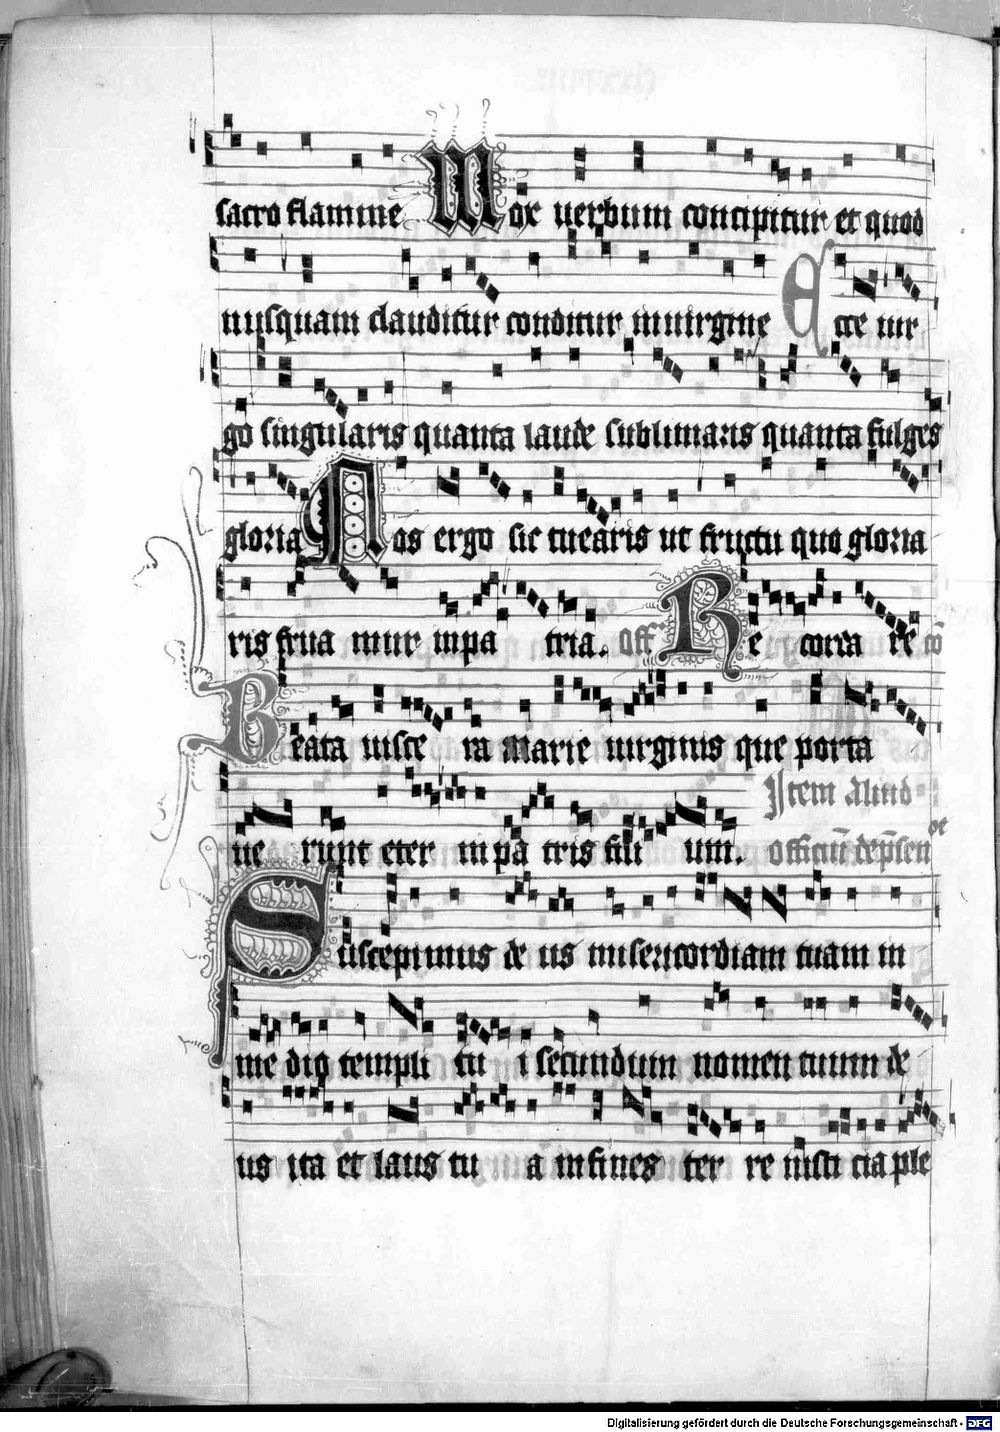 sacro flamine Mox uerbum concipitur et quod
nusquam clauditur conditur in uirgine Ecce uir
go singularis quanta laude sublimaris quanta fulges
gloria Nos ergo sic tuearis ut fructu quo gloria
ris frua mur in pa tria. off Re corda re cō
Beata uisce ra Marie uirginis que porta
Item Aliud
ue runt eter ni pa tris fili um. officiū de p̄sen
Suscepimus de us misericordiam tuam in
me dio templi tu i secundum nomen tuum de
us ita et laus tu a in fines ter re iusti cia ple
Digitalisierung gefördert durch die Deutsche Forschungsgemeinschaft - DFG